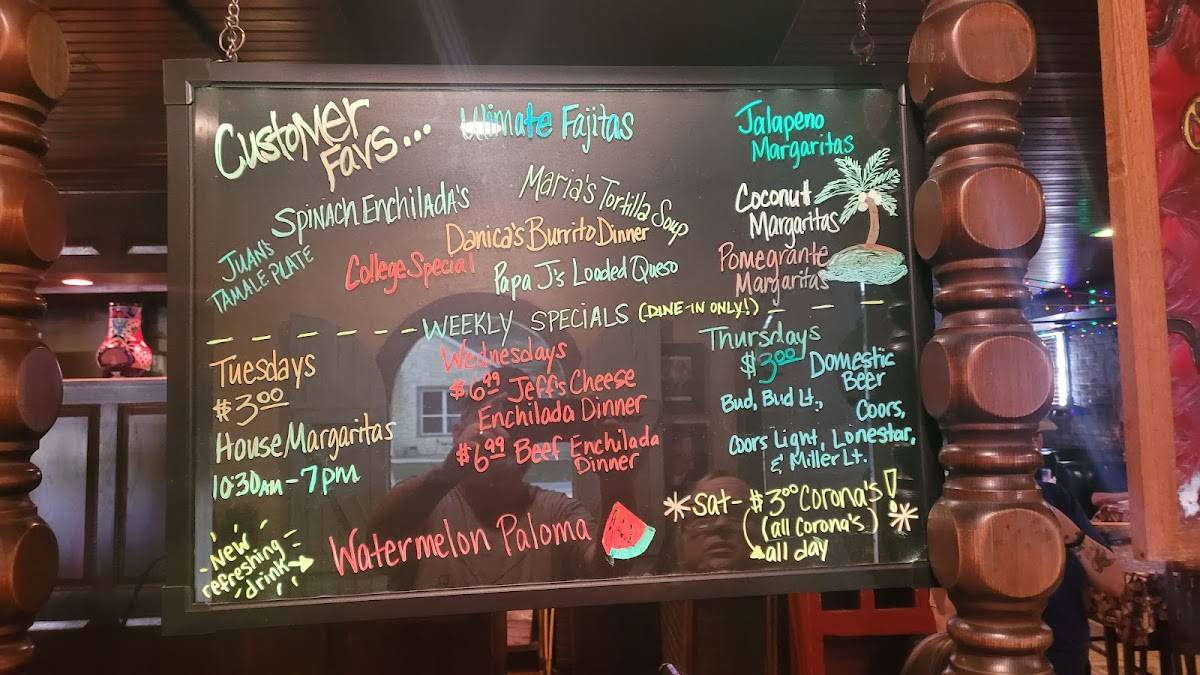 Customer
Favs...
Ulimate Fajitas
Jalapeno
Margaritas
Spinach Enchilada's
Maria's Tortilla Soup
Coconut
Margaritas
Juan's
Tamale Plate
College Special
Danica's Burrito Dinner
Papa J's Loaded Queso
Pomegrante
Margaritas
Weekly Specials (Dine-in only!)
Tuesdays
$3.00
House Margaritas
10:30am - 7pm
Wednesdays
$6.99 Jeff's Cheese
Enchilada Dinner
$6.99 Beef Enchilada
Dinner
Thursdays
$3.00 Domestic
Beer
Bud, Bud Lt., Coors,
Coors Light, Lonestar,
& Miller Lt.
*Sat- $3.00 Corona's! *
(all Corona's)
all day
New
refreshing
drink
Watermelon Paloma